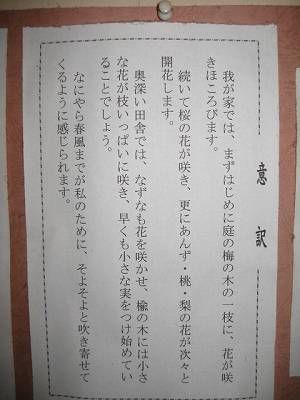 意訳
我が家では、まずはじめに庭の梅の木の一枝に、花が咲
きほころびます。
続いて桜の花が咲き、更にあんず・桃・梨の花が次々と
開花します。
奥深い田舎では、なずなも花を咲かせ、楡の木には小さ
な花が枝いっぱいに咲き、早くも小さな実をつけ始めてい
ることでしょう。
なにやら春風までが私のために、そよそよと吹き寄せて
くるように感じられます。